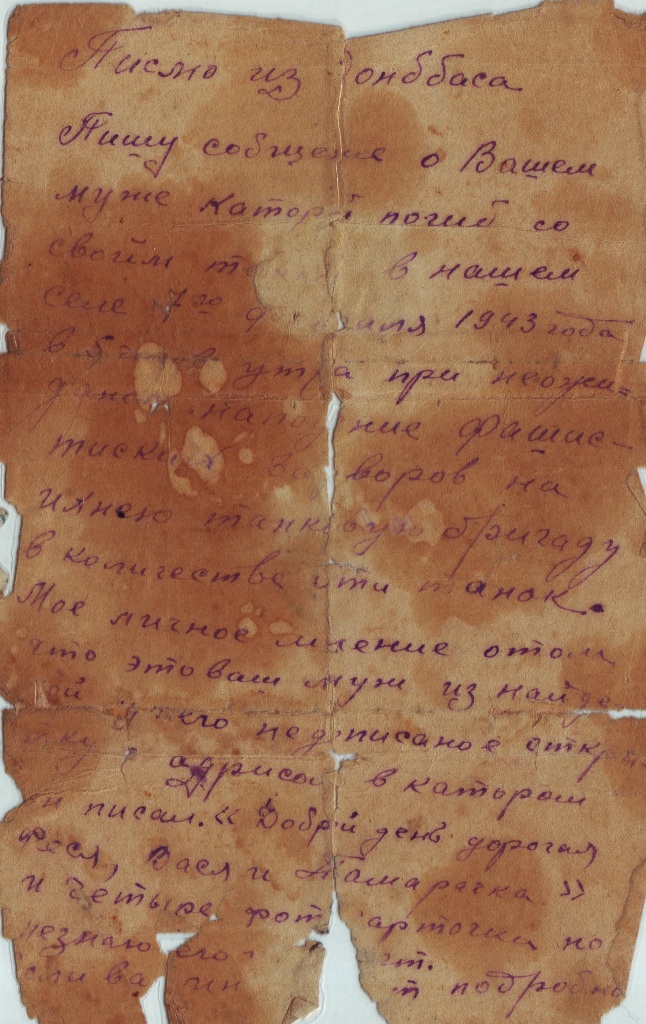 Писмо из Донббаса
Пишу собщение о Вашем
муже каторй погиб со
своим в нашем
селе 7го февраля 1943 года
в утра при неожи=
даном нападение фашис-
тиских варворов на
ихнею танковую бригаду
в количестве эти танок.
Мое личное мнение отом
что это ваш муж из найде
ой у него недописаное откры
тку с адрисом в катором
он писал. « Добрй день дорогая
Фася, Вася и Тамарачка »
и Четыре фотокарточки но
незнаю его
если ва подробно